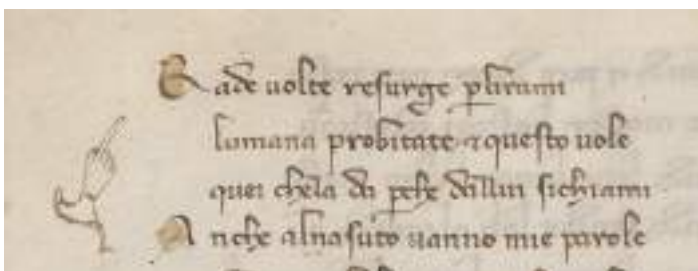 R ade uolte resurge ꝑlirami
lumana probitate ⁊ questo uole
quei chela da ꝑche dallui sichiami
A nche alnasuto uanno mie parole